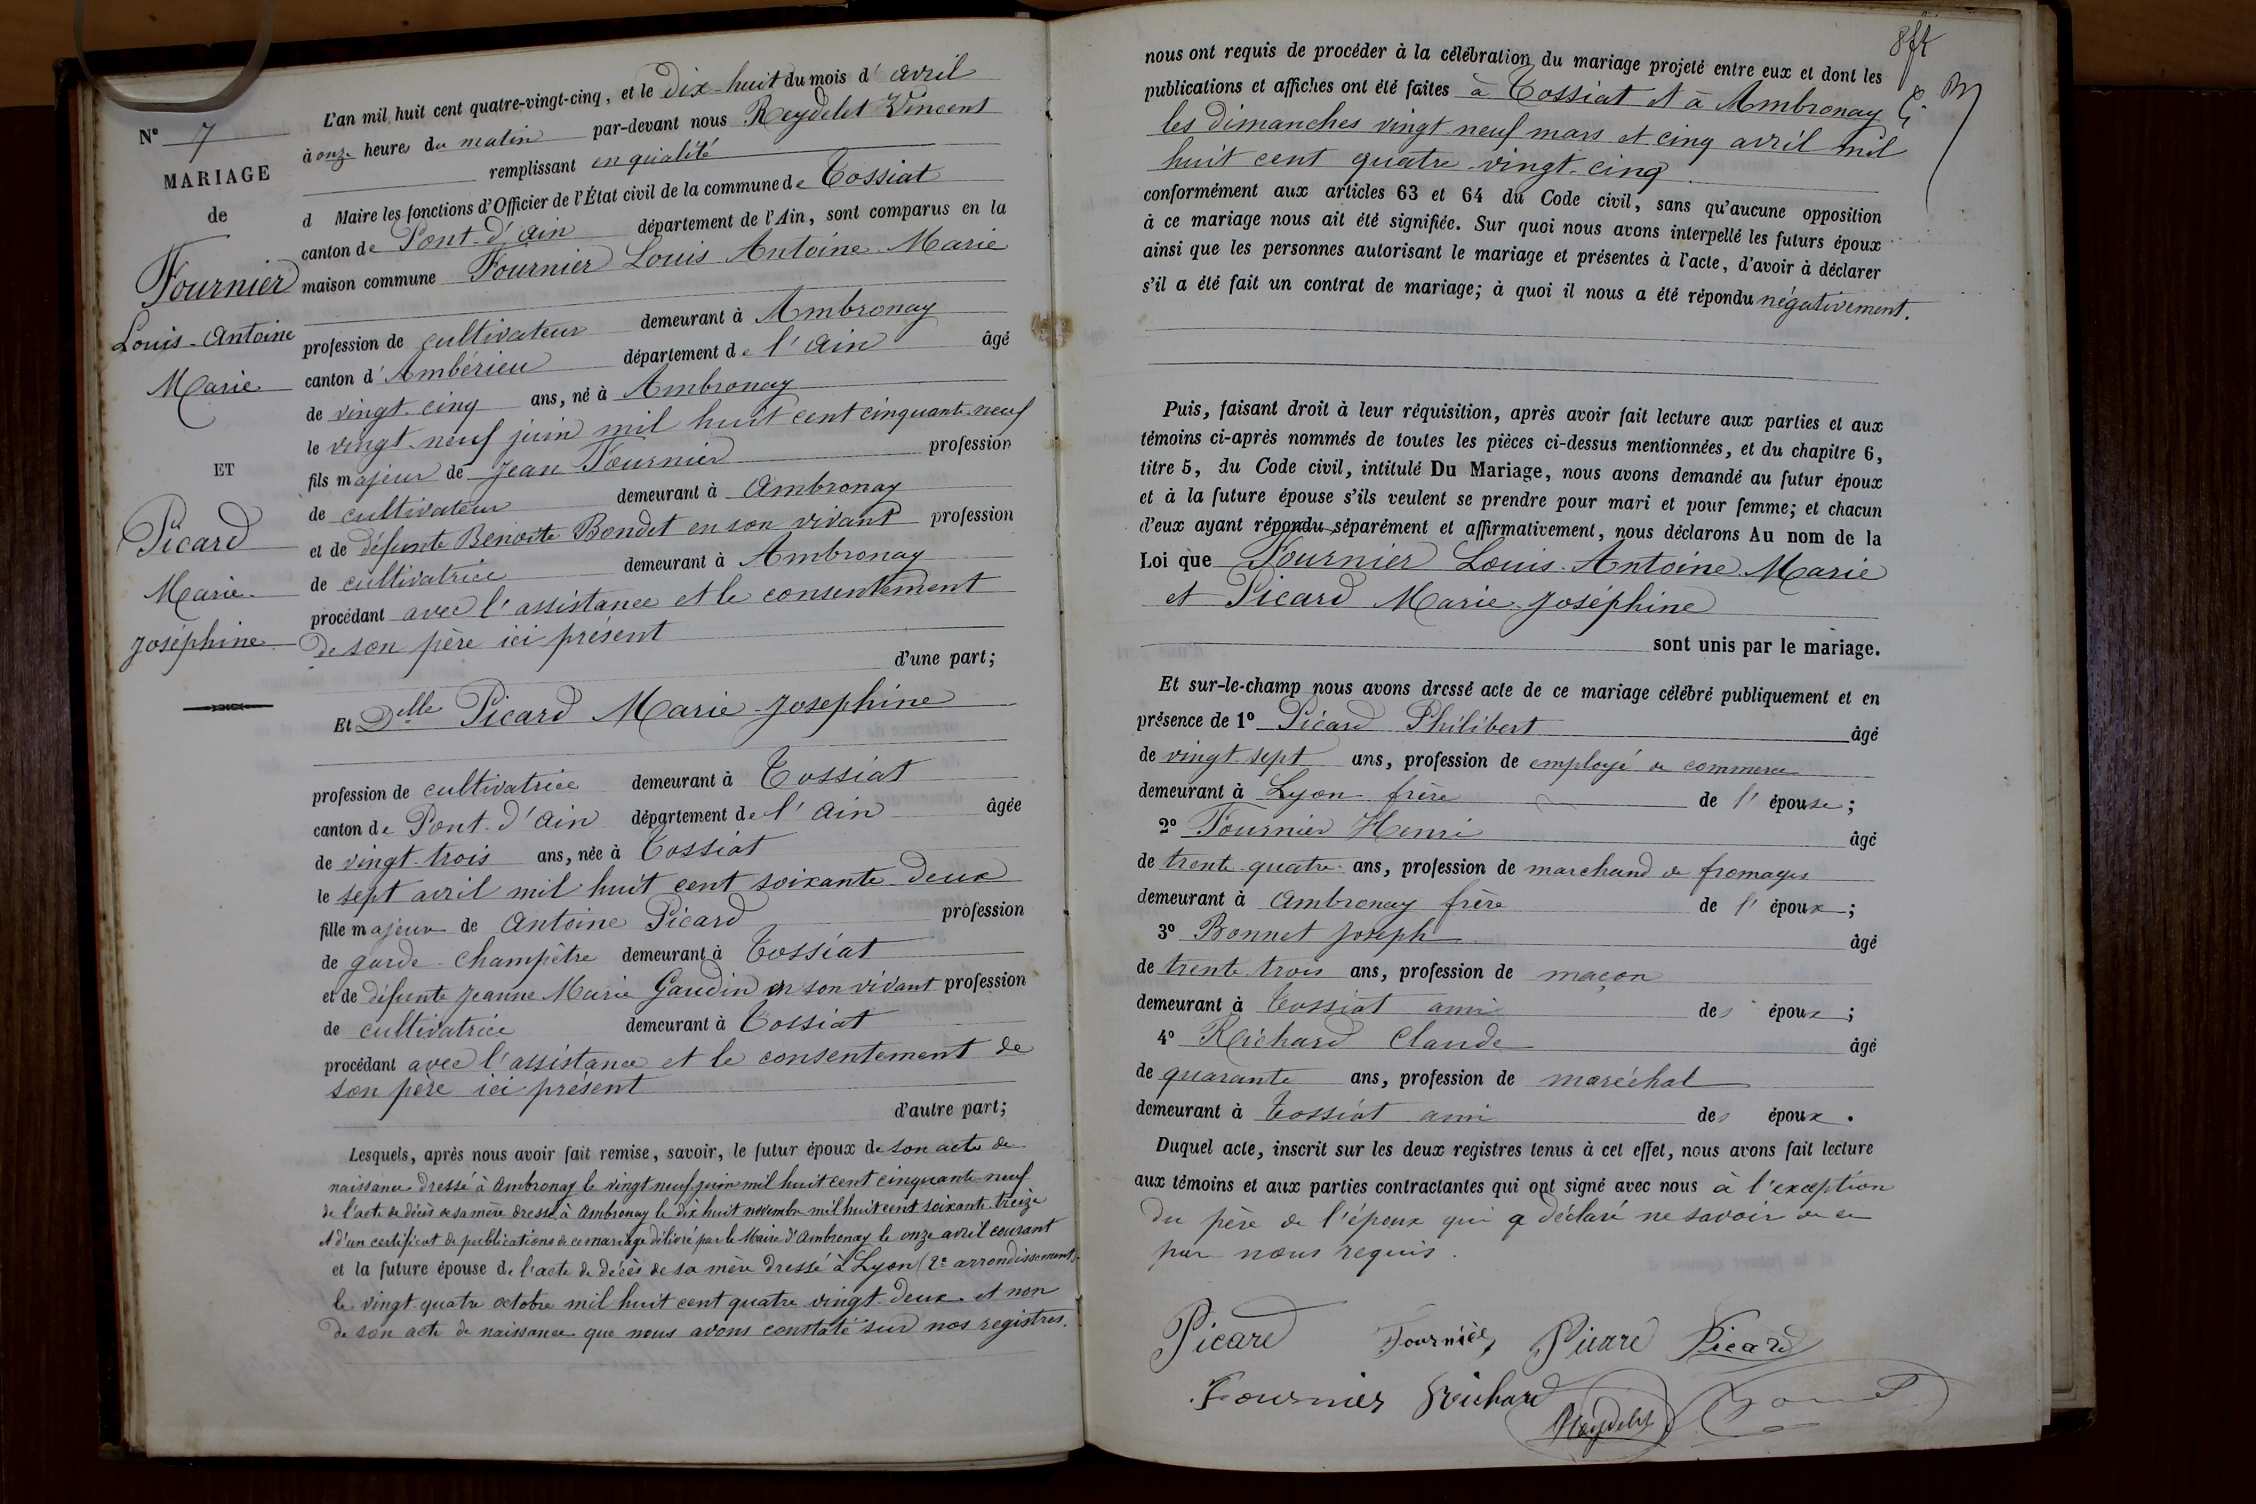 N° 7
MARIAGE
de
Fournier
Louis-Antoine
Marie
ET
Picard
Marie
Joséphine
L'an mil huit cent quatre-vingt-cinq, et le dix-huit du mois d'avril
à onze heures du matin par-devant nous Reydelet Vincent
remplissant en qualité
d Maire les fonctions d'Officier de l'État civil de la commune de Tossiat
canton de Pont-d'Ain département de l'Ain, sont comparus en la
maison commune Fournier Louis Antoine Marie
profession de cultivateur demeurant à Ambronay
canton d'Ambérieu département de l'Ain âgé
de vingt-cinq ans, né à Ambronay
le vingt-neuf juin mil huit cent cinquante-neuf
fils majeur de Jean Fournier profession
de cultivateur demeurant à Ambronay
et de défunte Benoite Bondet en son vivant profession
de cultivatrice demeurant à Ambronay
procédant avec l'assistance et le consentement
de son père ici présent
d'une part;
Et Delle Picard Marie-Josephine
profession de cultivatrice demeurant à Tossiat
canton de Pont-d'Ain département de l'Ain âgée
de vingt-trois ans, née à Tossiat
le sept avril mil huit cent soixante-deux
fille majeure de Antoine Picard profession
de garde-champêtre demeurant à Tossiat
et de défunte Jeanne Marie Gaudin en son vivant profession
de cultivatrice demeurant à Tossiat
procédant avec l'assistance et le consentement de
son père ici présent
d'autre part;
Lesquels, après nous avoir fait remise, savoir, le futur époux de son acte de
naissance dressé à Ambronay le vingt neuf juin mil huit cent cinquante-neuf
de l'acte de décès de sa mère dressé à Ambronay le dix huit novembre mil huit cent soixante-treize
et d'un certificat de publications de ce mariage délivré par le Maire d'Ambronay le onze avril courant
et la future épouse de l'acte de décès de sa mère dressé à Lyon (2e arrondissement)
le vingt-quatre octobre mil huit cent quatre vingt-deux et non
de son acte de naissance que nous avons constaté sur nos registres.
nous ont requis de procéder à la célébration du mariage projeté entre eux et dont les
publications et affiches ont été faites à Tossiat et à Ambronay
les dimanches vingt neuf mars et cinq avril mil
huit cent quatre-vingt-cinq
conformément aux articles 63 et 64 du Code civil, sans qu'aucune opposition
à ce mariage nous ait été signifiée. Sur quoi nous avons interpellé les futurs époux
ainsi que les personnes autorisant le mariage et présentes à l'acte, d'avoir à déclarer
s'il a été fait un contrat de mariage; à quoi il nous a été répondu négativement.
Puis, faisant droit à leur réquisition, après avoir fait lecture aux parties et aux
témoins ci-après nommés de toutes les pièces ci-dessus mentionnées, et du chapitre 6,
titre 5, du Code civil, intitulé Du Mariage, nous avons demandé au futur époux
et à la future épouse s'ils veulent se prendre pour mari et pour femme; et chacun
d'eux ayant répondu séparément et affirmativement, nous déclarons Au nom de la
Loi que Fournier Louis-Antoine Marie
et Picard Marie-Joséphine
sont unis par le mariage.
Et sur-le-champ nous avons dressé acte de ce mariage célébré publiquement et en
présence de 1° Picard Philibert âgé
de vingt-sept ans, profession de employé de commerce
demeurant à Lyon frère de l'épouse;
2° Fournier Henri âgé
de trente-quatre ans, profession de marchand de fromages
demeurant à Ambronay frère de l'époux;
3° Bonnet Joseph âgé
de trente-trois ans, profession de maçon
demeurant à Tossiat ami des époux;
4° Richard Claude âgé
de quarante ans, profession de maréchal
demeurant à Tossiat ami des époux.
Duquel acte, inscrit sur les deux registres tenus à cet effet, nous avons fait lecture
aux témoins et aux parties contractantes qui ont signé avec nous à l'exception
du père de l'époux qui a déclaré ne savoir de ce
par nous requis.
Picard Fournier Picard Picard
Fournier Richard Reydelet